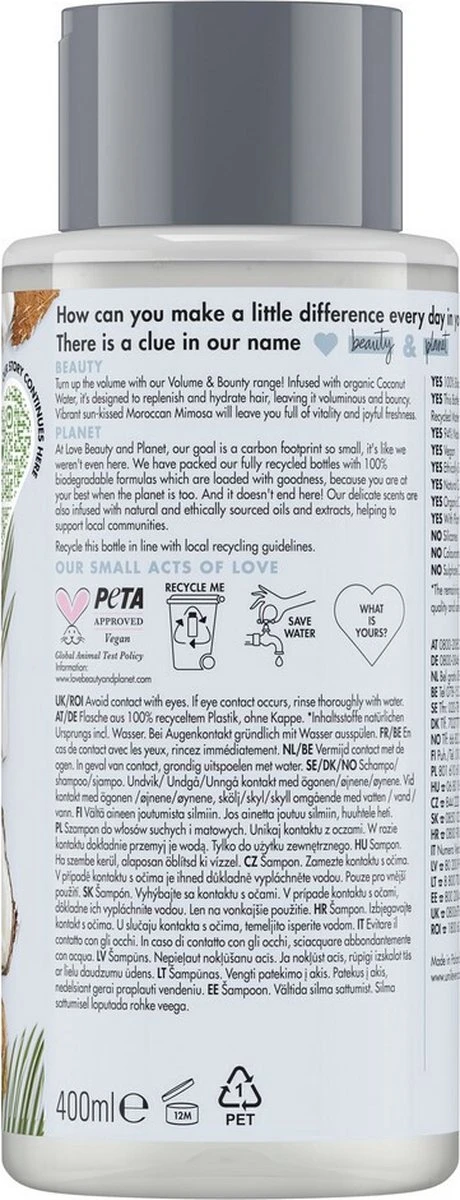 How can you make a little difference every day in
There is a clue in our name beauty & planet
STORY CONTINUES HERE
BEAUTY
Turn up the volume with our Volume & Bounty range! Infused with organic Coconut
Water, it's designed to replenish and hydrate hair, leaving it voluminous and bouncy.
Vibrant sun-kissed Moroccan Mimosa will leave you full of vitality and joyful freshness.
PLANET
At Love Beauty and Planet, our goal is a carbon footprint so small, it's like we
weren't even here. We have packed our fully recycled bottles with 100%
biodegradable formulas which are loaded with goodness, because you are at
your best when the planet is too. And it doesn't end here! Our delicate scents are
also infused with natural and ethically sourced oils and extracts, helping to
support local communities.
Recycle this bottle in line with local recycling guidelines.
OUR SMALL ACTS OF LOVE
PeTA
APPROVED
Vegan
Global Animal Test Policy
Information:
www.lovebeautyandplanet.com
RECYCLE ME
SAVE
WATER
WHAT
IS
YOURS?
UK/ROI Avoid contact with eyes. If eye contact occurs, rinse thoroughly with water.
AT/DE Flasche aus 100% recyceltem Plastik, ohne Kappe. *Inhaltsstoffe natürlichen
Ursprungs incl. Wasser. Bei Augenkontakt gründlich mit Wasser ausspülen. FR/BE En
cas de contact avec les yeux, rincez immédiatement. NL/BE Vermijd contact met de
ogen. In geval van contact, grondig uitspoelen met water. SE/DK/NO Schampo/
shampoo/sjampo. Undvik/ Undgå/Unngå kontakt med ögonen/øjnene/øynene. Vid
kontakt med ögonen /øjnene/øynene, skölj/skyl/skyll omgående med vatten / vand /
vann. FI Vältä aineen joutumista silmiin. Jos ainetta joutuu silmiin, huuhtele heti.
PL Szampon do włosów suchych i matowych. Unikaj kontaktu z oczami. W razie
kontaktu dokładnie przemyj je wodą. Tylko do użytku zewnętrznego. HU Sampon.
Ha szembe kerül, alaposan öblítsd ki vízzel. CZ Šampon. Zamezte kontaktu s očima.
V případě kontaktu s očima je ihned důkladně vypláchněte vodou. Pouze pro vnější
použití. SK Šampón. Vyhýbajte sa kontaktu s očami. V prípade kontaktu s očami,
dôkladne ich vypláchnite vodou. Len na vonkajšie použitie. HR Šampon. Izbjegavajte
kontakt s očima. U slučaju kontakta s očima, temeljito isperite vodom. IT Evitare il
contatto con gli occhi. In caso di contatto con gli occhi, sciacquare abbondantemente
con acqua. LV Šampūns. Nepieļaut nokļūšanu acīs. Ja nokļūst acīs, rūpīgi izskalot tās
ar lielu daudzumu ūdens. LT Šampūnas. Vengti patekimo į akis. Patekus į akis,
nedelsiant gerai praplauti vandeniu. EE Šampoon. Vältida silma sattumist. Silma
sattumisel loputada rohke veega.
400ml e
12M
1
PET
YES 100%
YES
Recycled
YES
YES Vegan
YES
YES
YES
YES
NO Silicones
NO
NO
AT
DE
NL
BE
SE
DK
NO
FI
PL
HU
CZ
SK
HR
IT
LV
LT
EE
UK
ROI
Made in